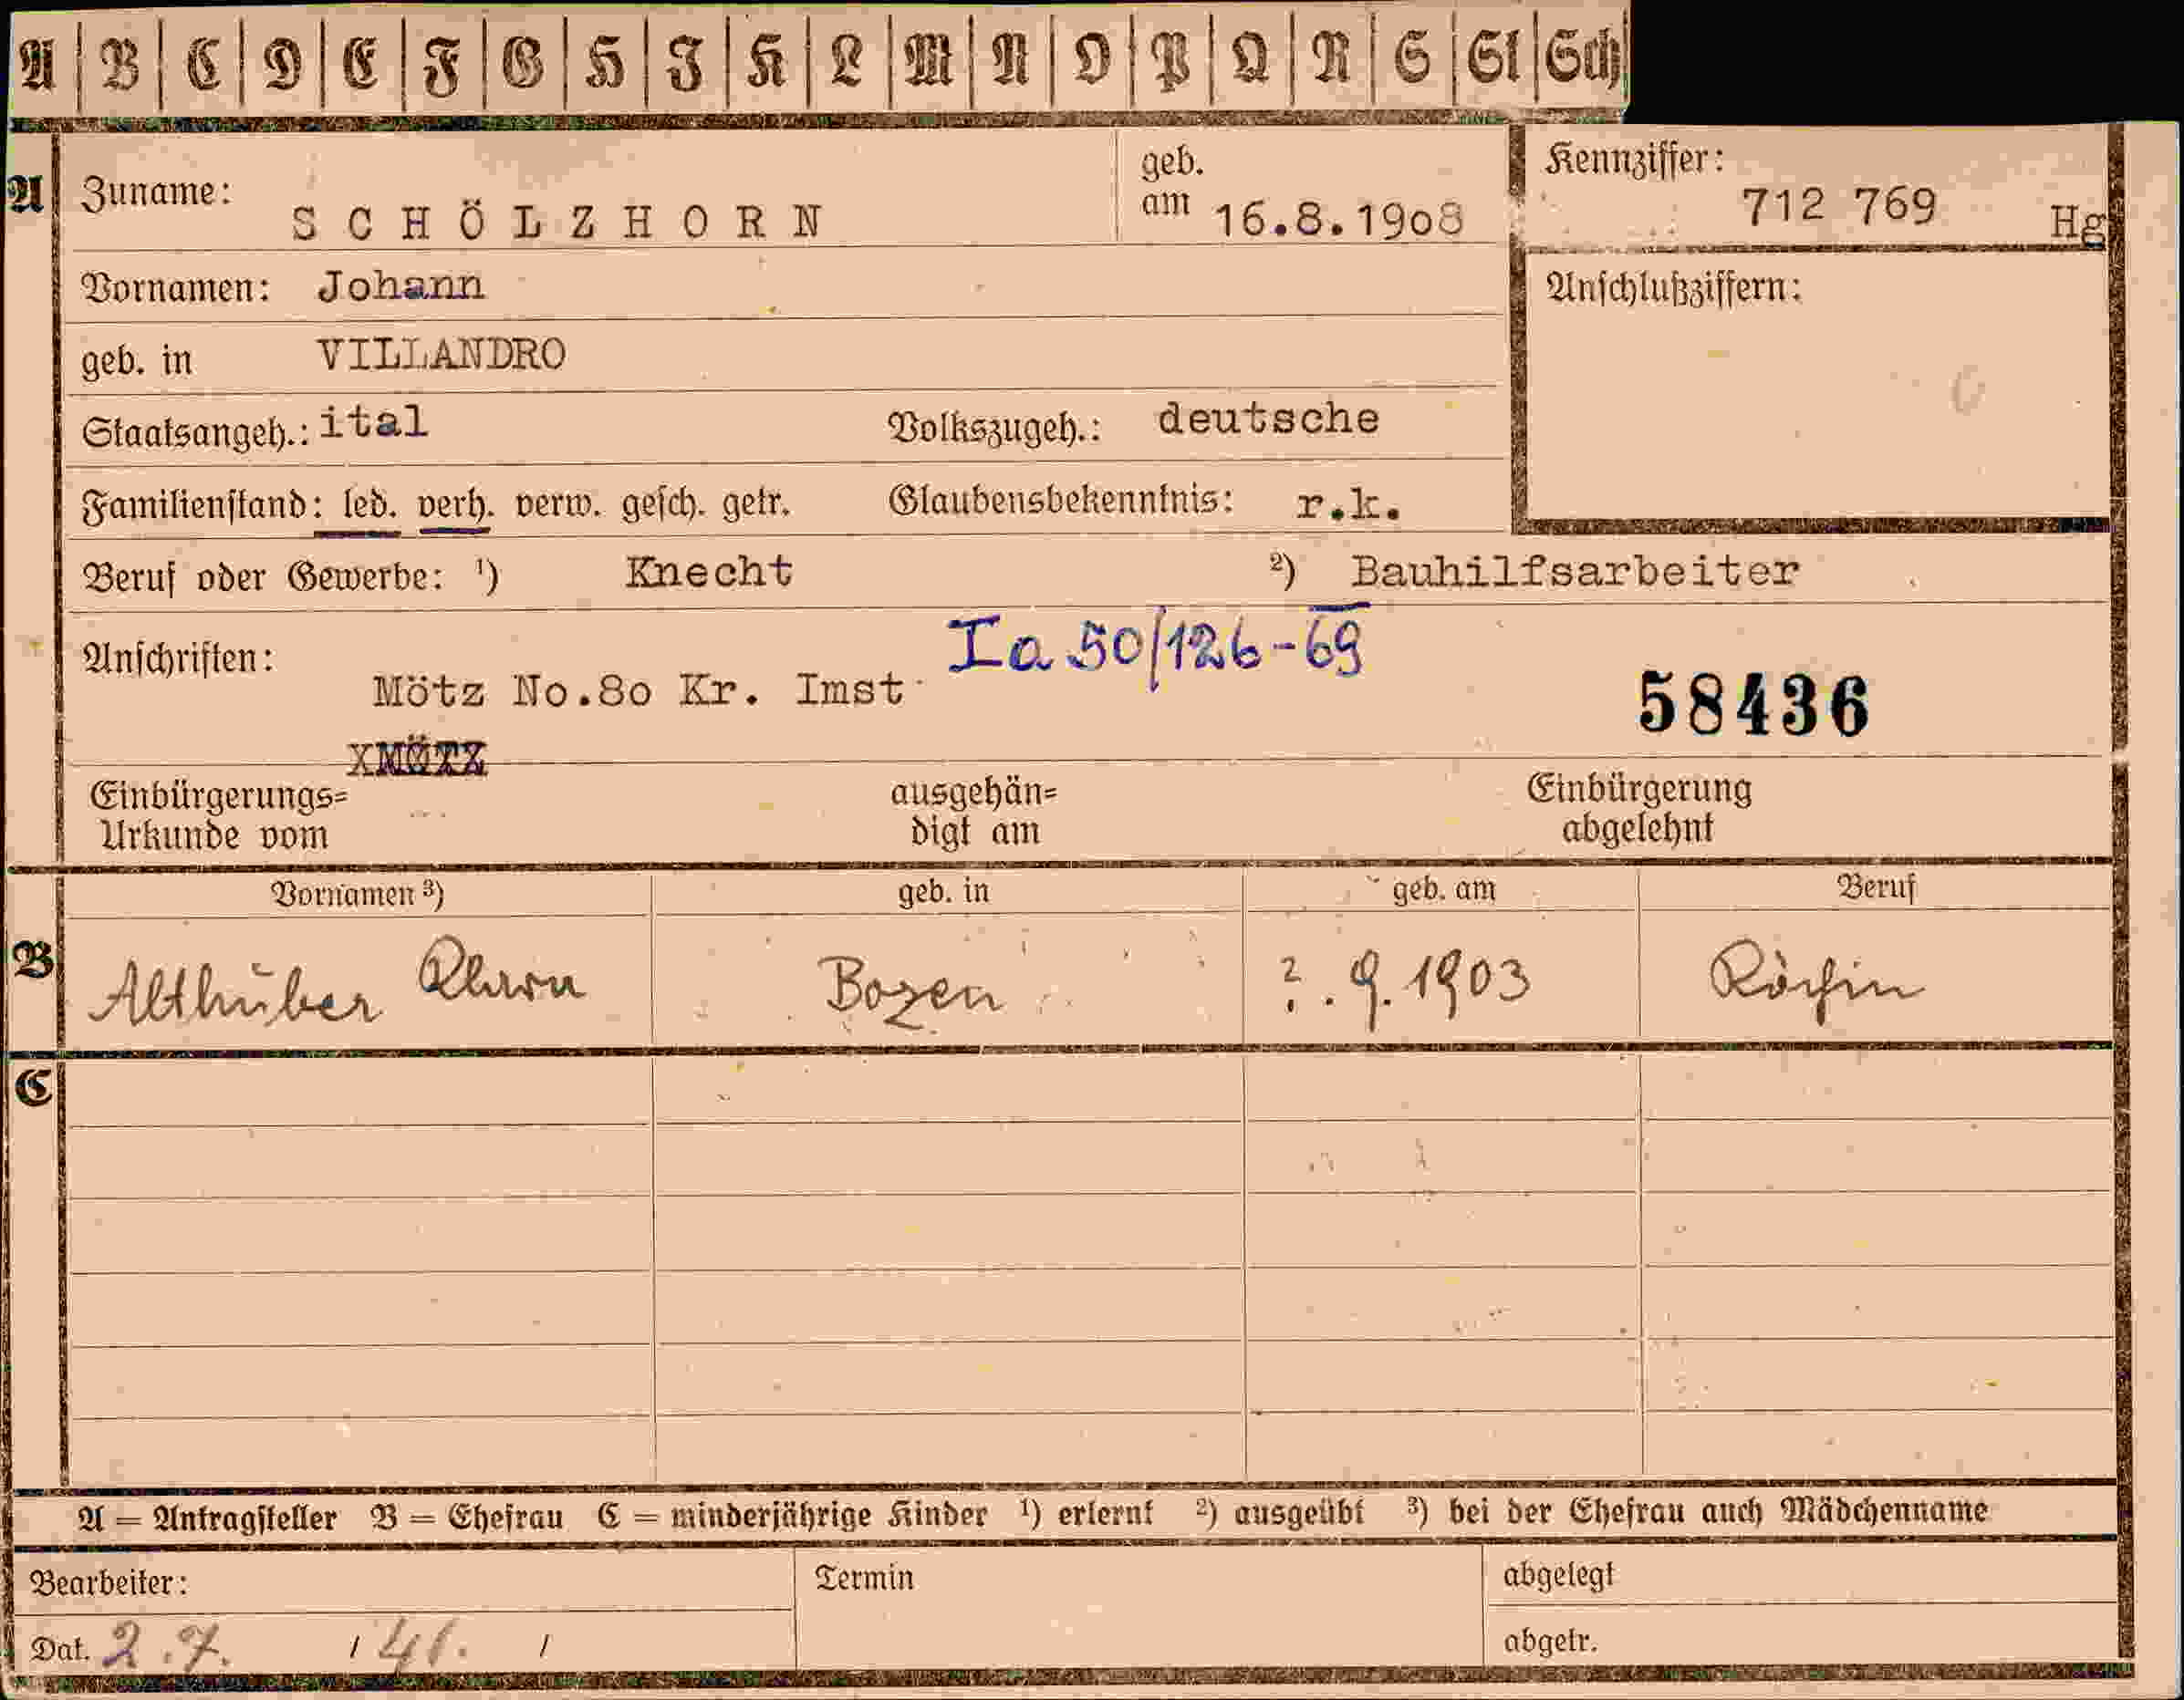 A B C D E F G H I K L M N O P Q R S St Sch
A Zuname: SCHÖLZHORN geb. am 16.8.19o8 Kennziffer: 712 769 Hg
Vornamen: Johann Anschlußziffern:
geb. in VILLANDRO
Staatsangeh.: ital Volkszugeh.: deutsche
Familienstand: led. verh. verw. gesch. getr. Glaubensbekenntnis: r.k.
Beruf oder Gewerbe: ¹) Knecht ²) Bauhilfsarbeiter
Anschriften: Ia 50/126-69
Mötz No.8o Kr. Imst 58436
Einbürgerungs= ausgehän= Einbürgerung
Urkunde vom digt am abgelehnt
Vornamen ³) geb. in geb. am Beruf
B Althuber Klara Bozen ?.9.1903 Köchin
C
A = Antragsteller B = Ehefrau C = minderjährige Kinder ¹) erlernt ²) ausgeübt ³) bei der Ehefrau auch Mädchenname
Bearbeiter: Termin abgelegt
Dat. 2.7. / 41. / abgetr.